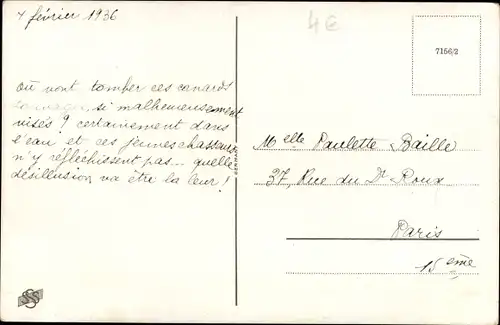 4 février 1936
4€
7156/2
Où vont tomber ces canards
sauvages, si malheureusement
visés ? certainement dans
l'eau et ces jeunes chasseurs
n'y réfléchissent pas... quelle
désillusion va être la leur !
Melle Paulette Baille
37, Rue du Dr Roux
Paris
15ème